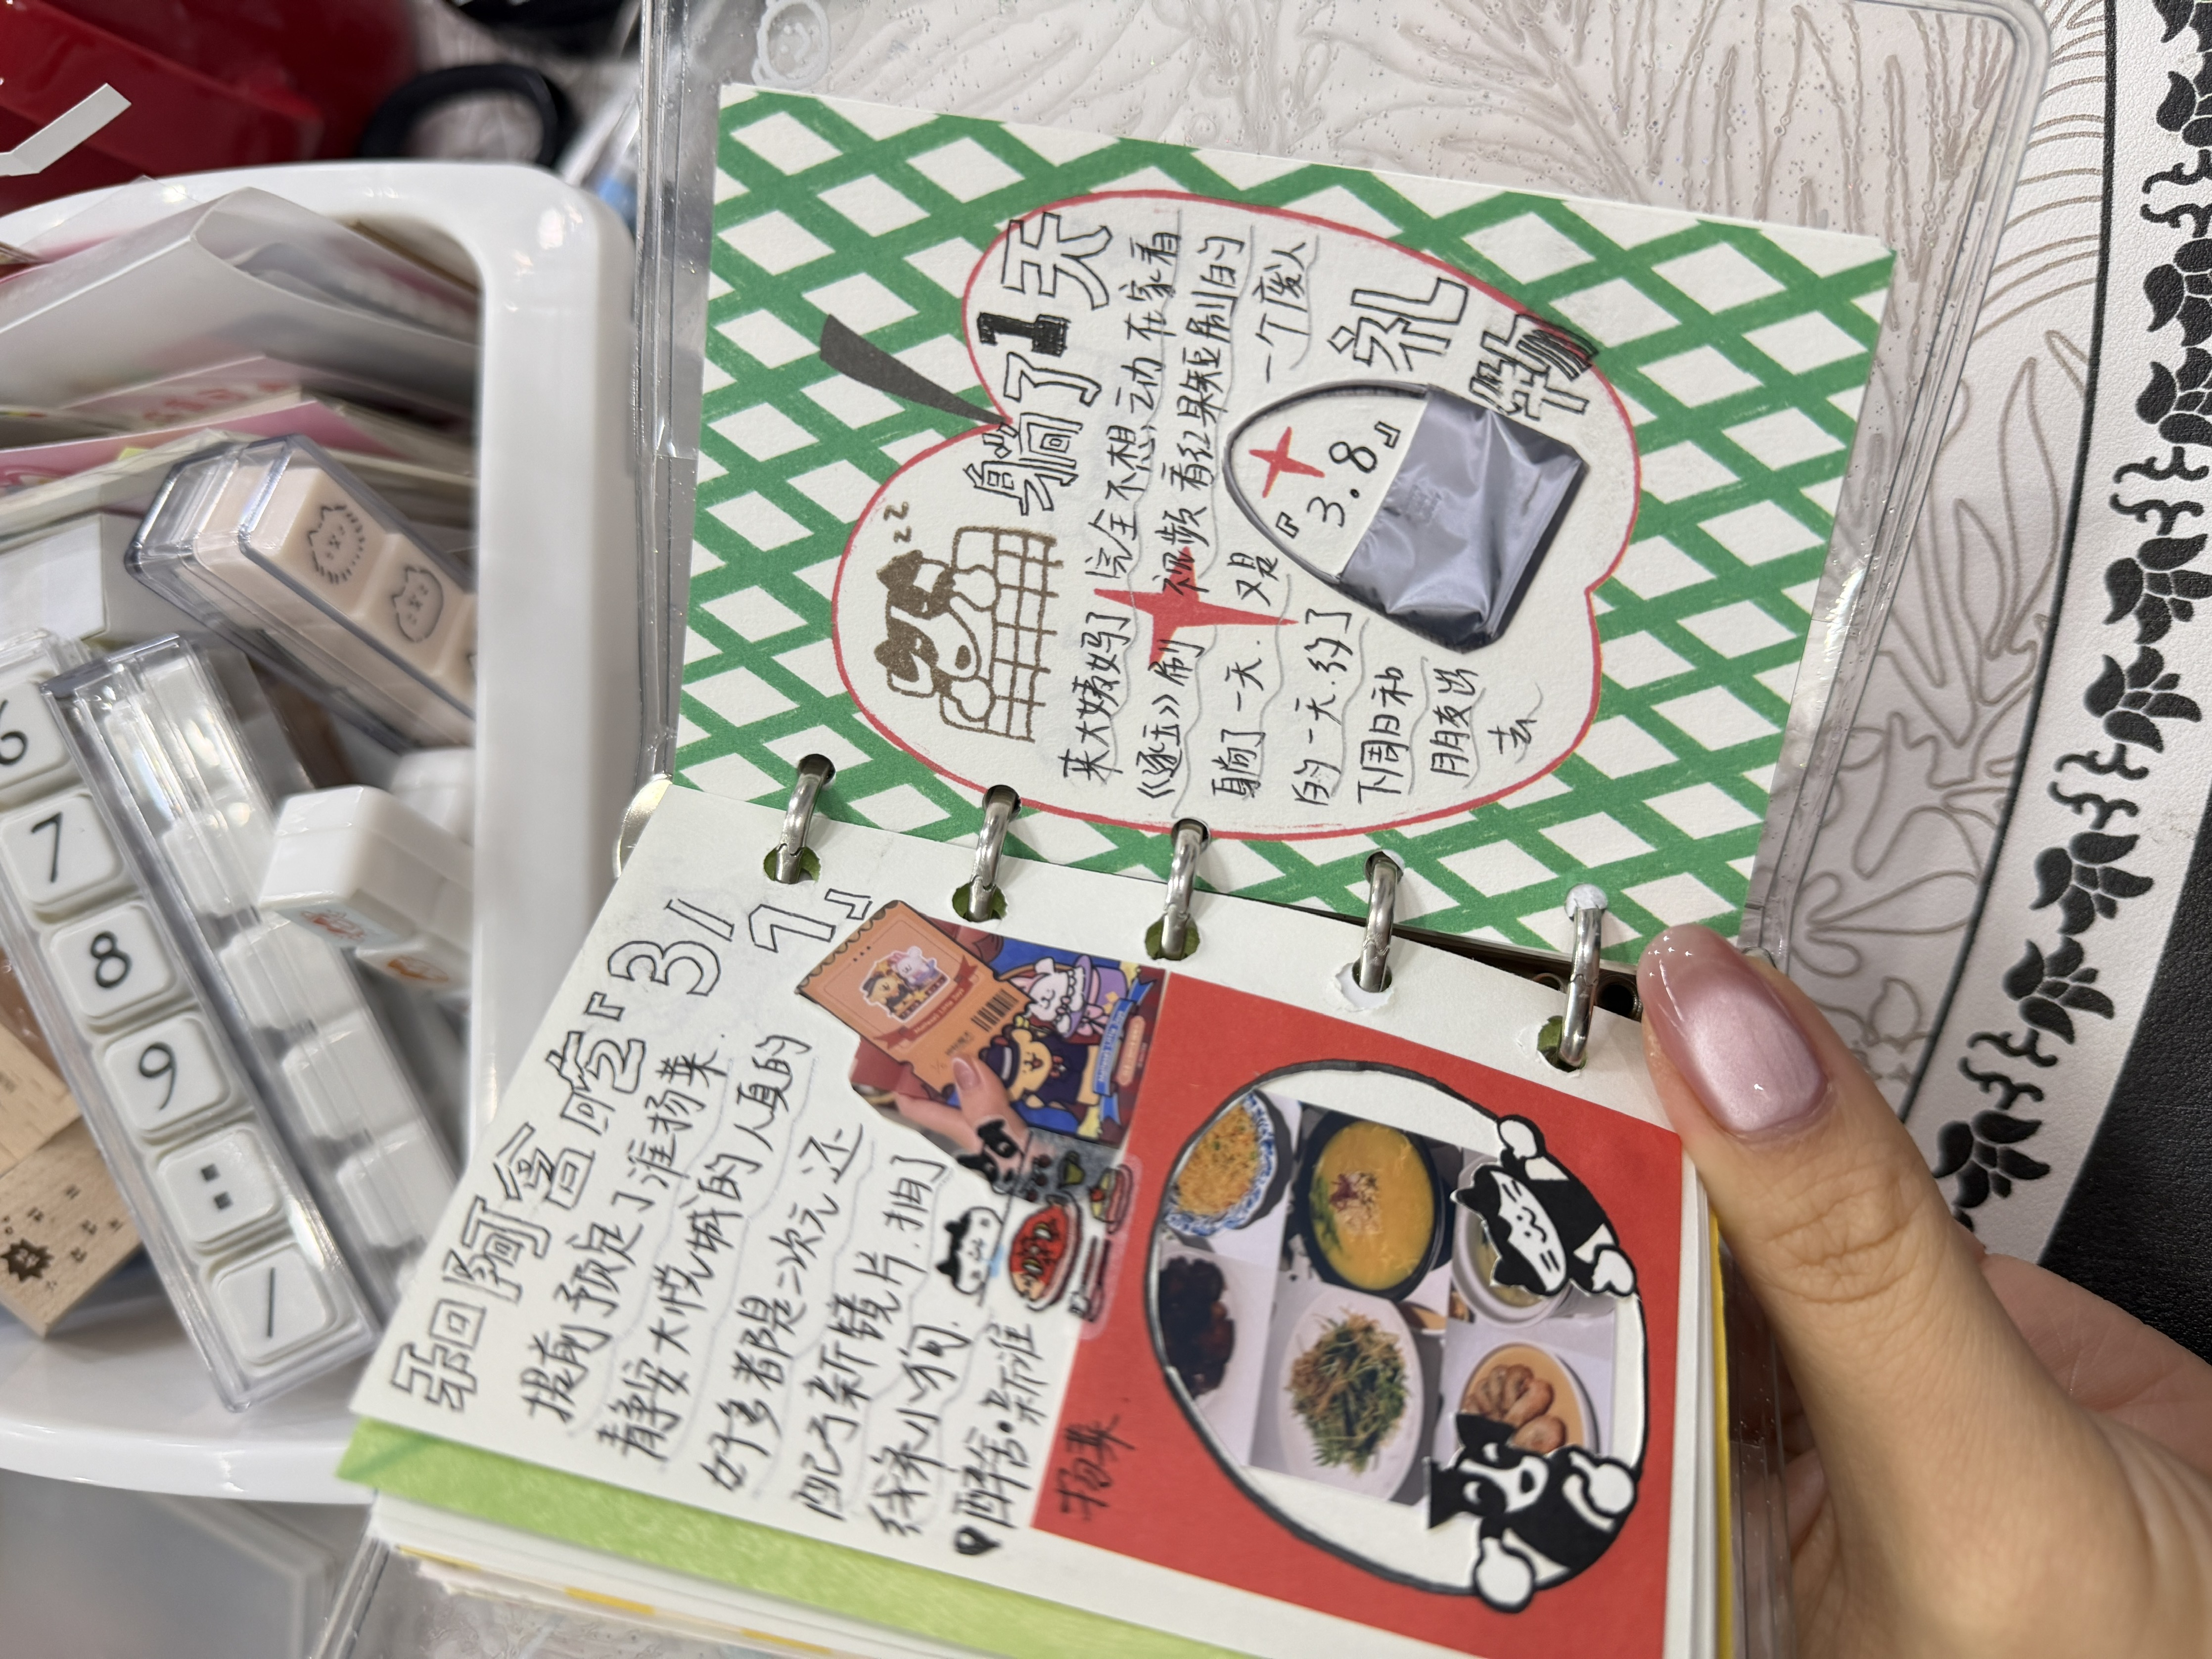 和阿禽吃『3/7』
提前预定了淮扬菜.
静安大悦城的人真的
好多都是二次元还
配了新镜片.拥有
线条小狗.
醉舍·新淮
扬菜.
躺了1天
来大姨妈了 完全不想动 在家看
《逐玉》刷视频 看红果短剧的
躺了一天. 又是一个废人
的一天.约了
下周日和
朋友出
去
『3.8』
礼物
zz
6
7
8
9
:
/